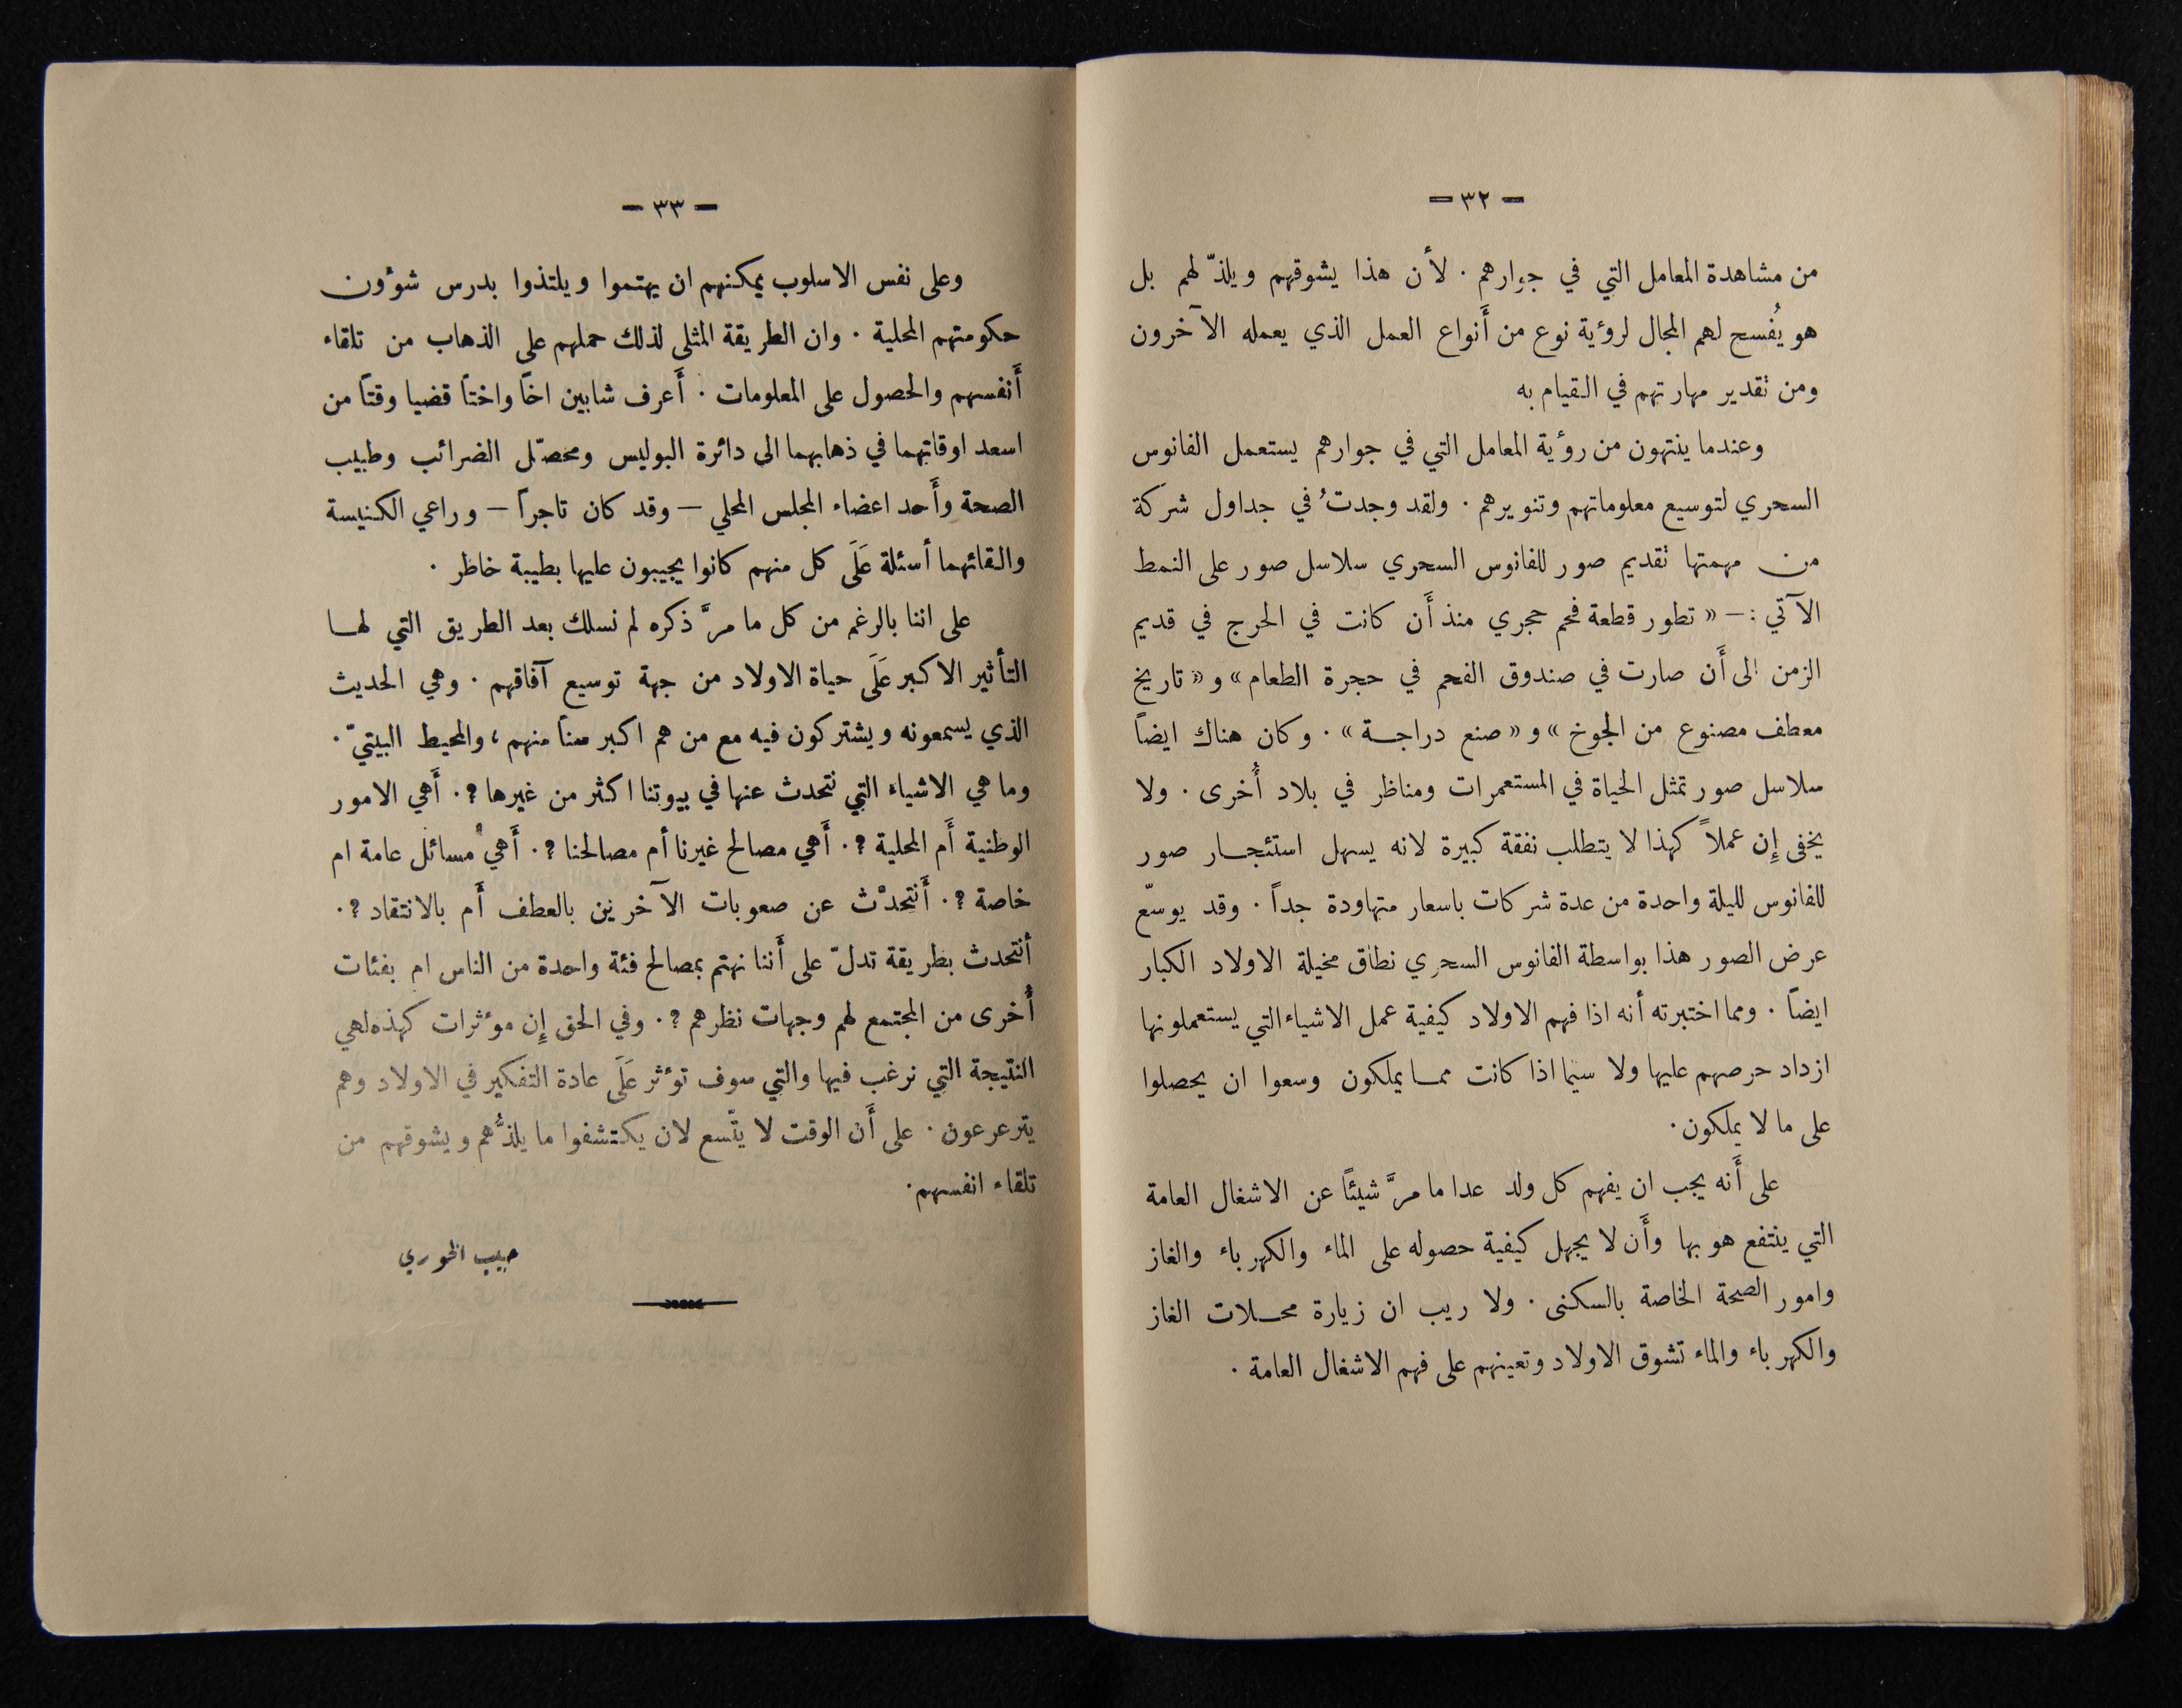 - ٣٢ -
من مشاهدة المعامل التي في جوارهم . لأن هذا يشوقهم ويلذّ لهم بل
هو يُفسح لهم المجال لروؤية نوع من أَنواع العمل الذي يعمله الآخرون
ومن تقدير مهارتهم في القيام به
وعندما ينتهون من روؤية المعامل التي في جوارهم يستعمل الفانوس
السحري لتوسيع معلوماتهم وتنويرهم . ولقد وجدتُ في جداول شركة
من مهمتها تقديم صور للفانوس السحري سلاسل صور على النمط
الآتي :— « تطور قطعة فحم حجري منذ أَن كانت في الحرج في قديم
الزمن الى أَن صارت في صندوق الفحم في حجرة الطعام » و « تاريخ
معطف مصنوع من الجوخ » و « صنع دراجة » . وكان هناك ايضاً
سلاسل صور تمثل الحياة في المستعمرات ومناظر في بلاد أُخرى . ولا
يخفى إِن عملاً كهذا لا يتطلب نفقة كبيرة لانه يسهل استئجار صور
للفانوس لليلة واحدة من عدة شركات باسعار متهاودة جداً . وقد يوسّع
عرض الصور هذا بواسطة الفانوس السحري نطاق مخيلة الاولاد الكبار
ايضاً . ومما اختبرته أنه اذا فهم الاولاد كيفية عمل الاشياء التي يستعملونها
ازداد حرصهم عليها ولا سيما اذا كانت مما يملكون وسعوا ان يحصلوا
على ما لا يملكون .
على أَنه يجب ان يفهم كل ولد عدا ما مرَّ شيئاً عن الاشغال العامة
التي ينتفع هو بها وأَن لا يجهل كيفية حصوله على الماء والكهرباء والغاز
وامور الصحة الخاصة بالسكنى . ولا ريب ان زيارة محلات الغاز
والكهرباء والماء تشوق الاولاد وتعينهم على فهم الاشغال العامة .
- ٣٣ -
وعلى نفس الاسلوب يمكنهم ان يهتموا ويلتذوا بدرس شوؤن
حكومتهم المحلية . وان الطريقة المثلى لذلك حملهم على الذهاب من تلقاء
أَنفسهم والحصول على المعلومات . أَعرف شابين اخاً واختاً قضيا وقتاً من
اسعد اوقاتهما في ذهابهما الى دائرة البوليس ومحصّل الضرائب وطبيب
الصحة وأَحد اعضاء المجلس المحلي — وقد كان تاجراً — وراعي الكنيسة
والقائهما أسئلة عَلَى كل منهم كانوا يجيبون عليها بطيبة خاطر .
على اننا بالرغم من كل ما مرَّ ذكره لم نسلك بعد الطريق التي لها
التأثير الاكبر عَلَى حياة الاولاد من جهة توسيع آفاقهم . وهي الحديث
الذي يسمعونه ويشتركون فيه مع من هم اكبر سناً منهم ، والمحيط البيتيّ .
وما هي الاشياء التي نتحدث عنها في بيوتنا اكثر من غيرها ؟ . أَهي الامور
الوطنية أَم المحلية ؟ . أَهي مصالح غيرنا أم مصالحنا ؟ . أَهي مسائل عامة ام
خاصة ؟ . أَنتحدَّث عن صعوبات الآخرين بالعطف أَم بالانتقاد ؟ .
أنتحدث بطريقة تدلّ على أَننا نهتم بمصالح فئة واحدة من الناس ام بفئات
أُخرى من المجتمع لهم وجهات نظرهم ؟ . وفي الحق إِن موؤثرات كهذه لهي
النتيجة التي نرغب فيها والتي سوف توؤثر عَلَى عادة التفكير في الاولاد وهم
يترعرعون . على أَن الوقت لا يتّسع لان يكتشفوا ما يلذُّهم ويشوقهم من
تلقاء انفسهم .
حبيب الخوري